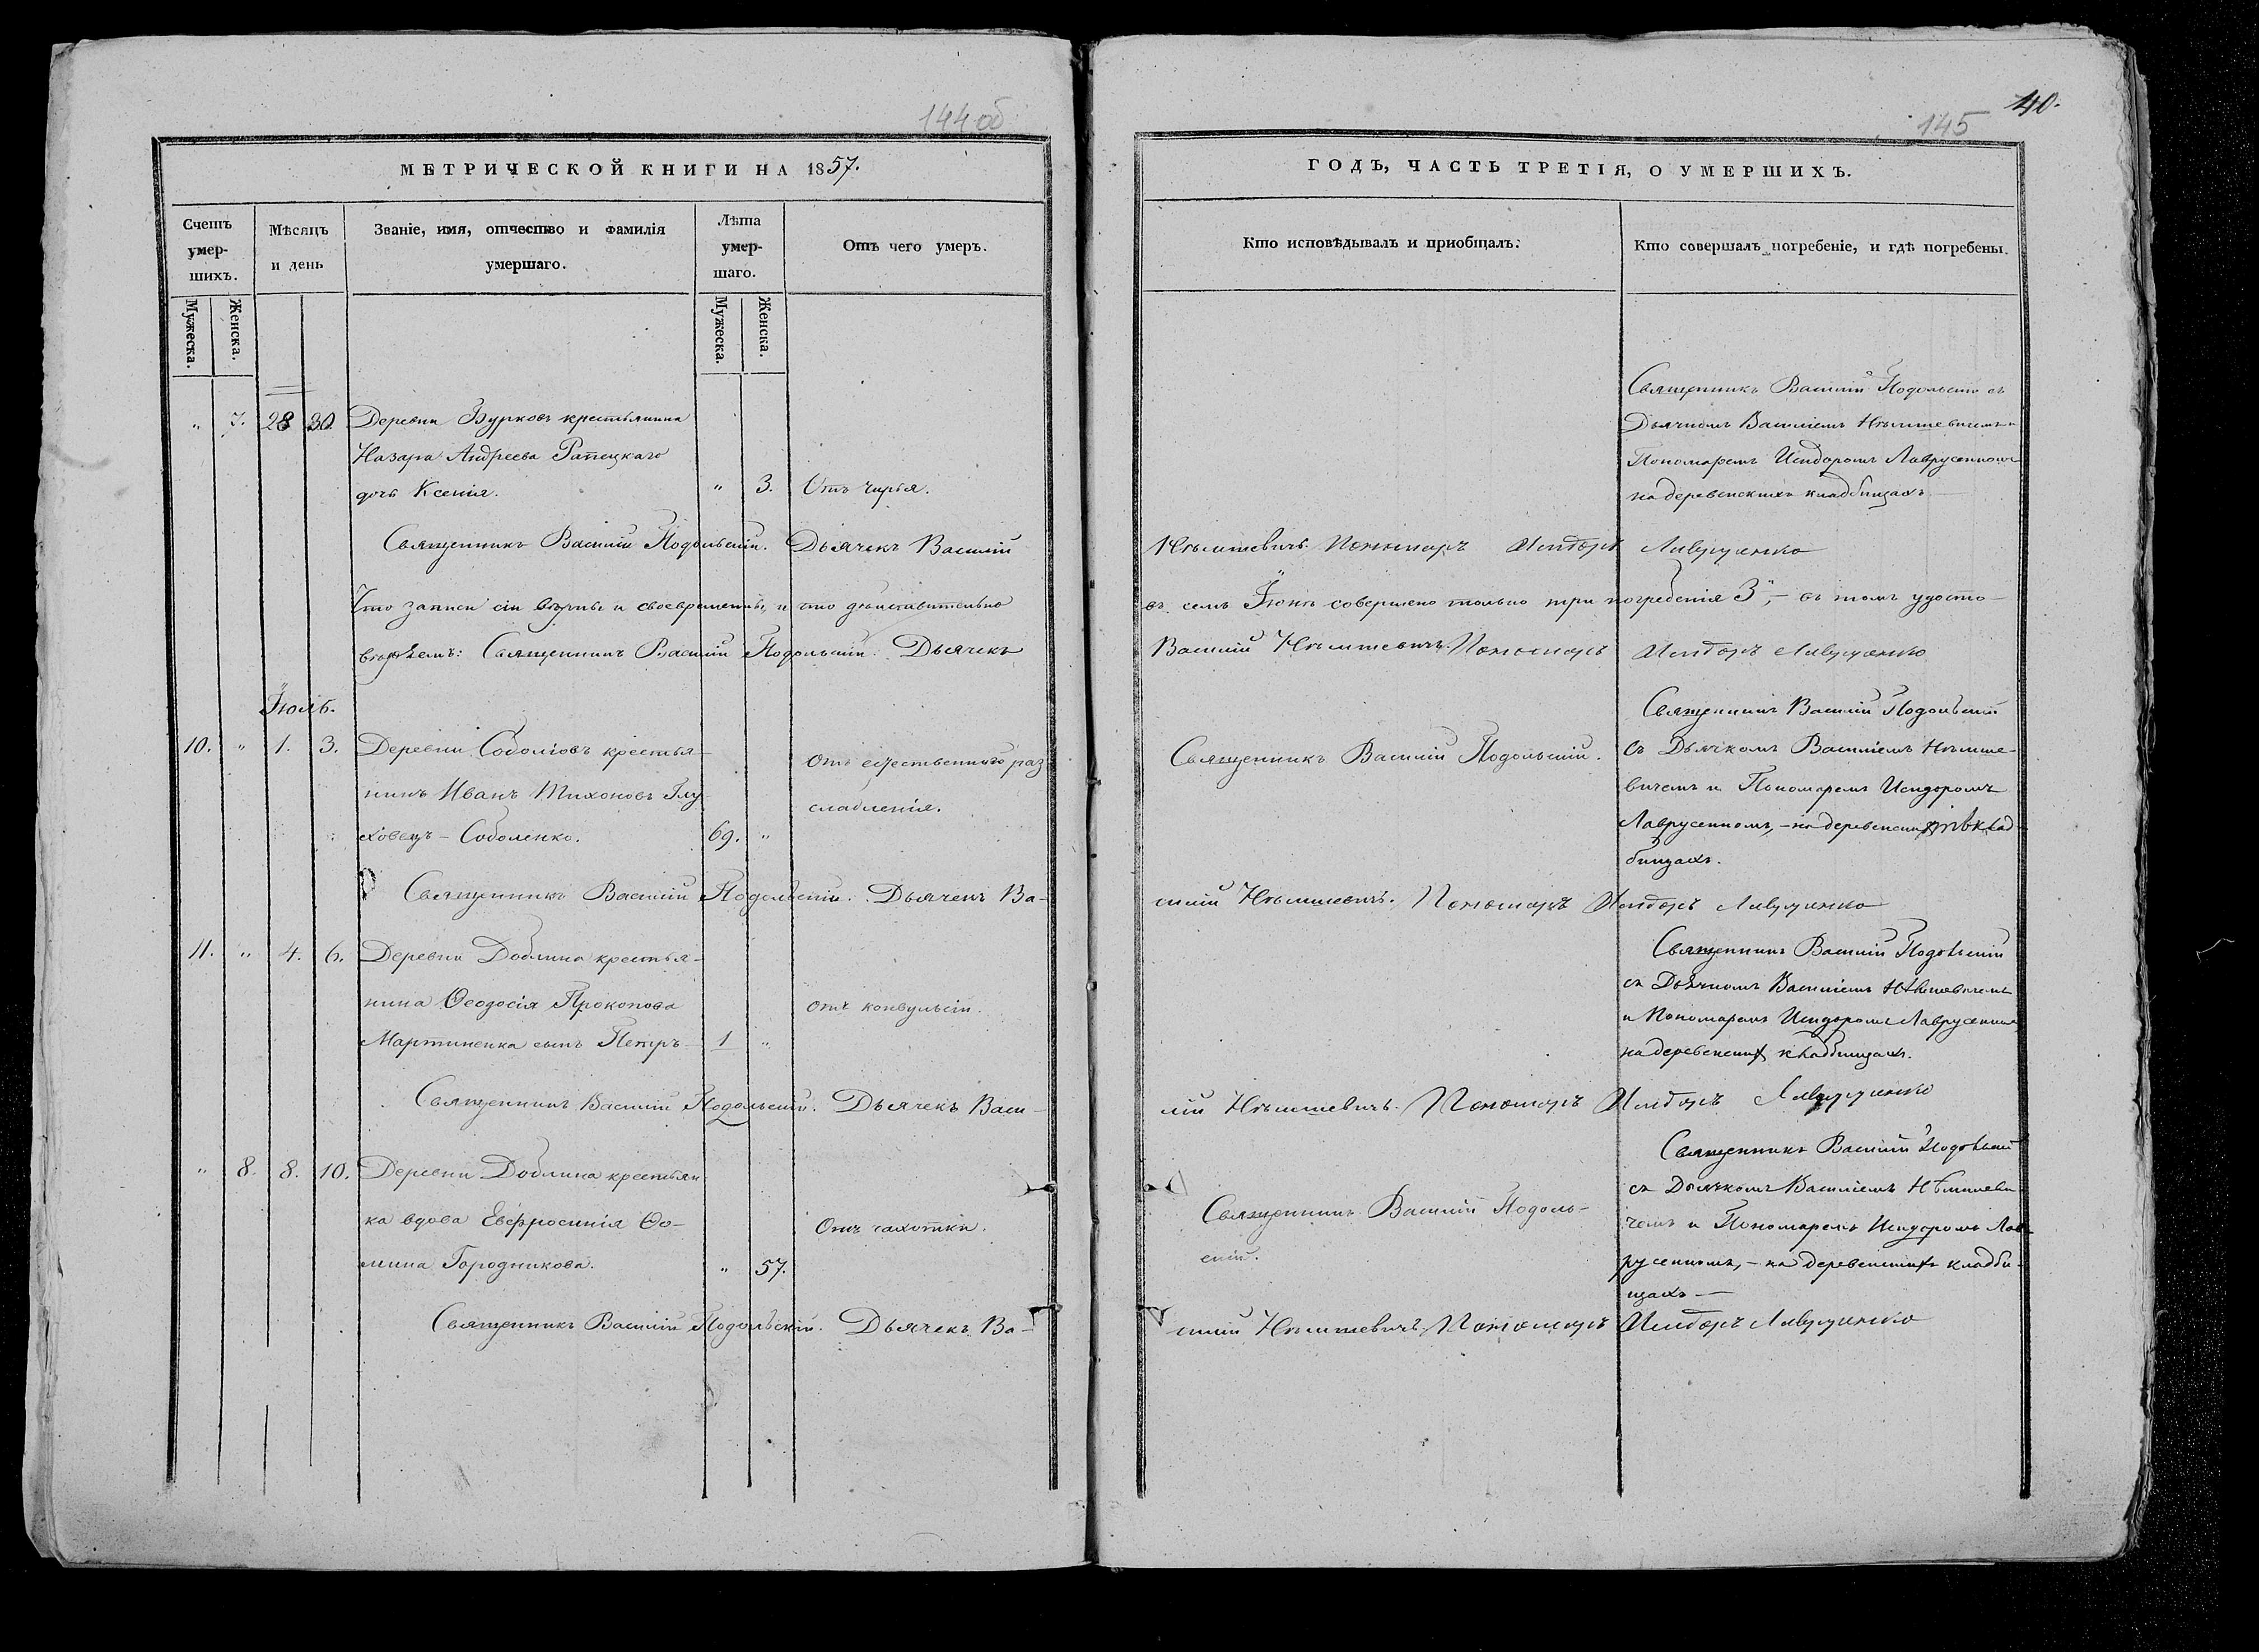 144 об
МЕТРИЧЕСКОЙ КНИГИ НА 1857.
Счетъ умер-шихъ.
Мѣсяцъ и день
Званіе, имя, отчество и фамилія умершаго.
Лѣта умер-шаго.
Отъ чего умеръ.
Мужеска.
Женска.
Мужеска.
Женска.
„ 7. 28 30. Деревни Бурковъ крестьянина
Назара Андреева Рапецкаго
дочь Ксенія. „ 3. Отъ чирья.
Священникъ Василій Подольскій. Дьячекъ Василій
Что записи сіи вѣрны и своевременны, и что дѣйствительно
вѣряемъ: Священникъ Василій Подольскій. Дьячекъ
Іюль.
10. „ 1. 3. Деревни Соболіовъ крестья-
нинъ Иванъ Тихоновъ Глу-
ховецъ - Соболенко. 69. „
Отъ естественнаго раз
слабленія.
Священникъ Василій Подольскій. Дьячекъ Ва-
11. „ 4. 6. Деревни Доблина крестья-
нина Ѳеодосія Прокопова
Мартиненка сынъ Петръ 1 „
отъ конвульсіи.
Священникъ Василій Подольскій. Дьячекъ Васи-
„ 8. 8. 10. Деревни Доблина крестьян
ка вдова Евфросинія Ѳо-
мина Городникова. „ 57.
Отъ чахотки.
Священникъ Василій Подольскій. Дьячекъ Ва-
145
40.
ГОДЪ, ЧАСТЬ ТРЕТІЯ, О УМЕРШИХЪ.
Кто исповѣдывалъ и пріобщалъ.
Кто совершалъ погребеніе, и гдѣ погребены.
Священникъ Василій Подольскій съ
Дьячкомъ Василіемъ Нѣмшевичемъ и
Пономаремъ Исидоромъ Лаврусенкомъ
на деревенскихъ кладбищахъ.
Нѣмшевичъ. Пономарь Исидоръ Лаврусенко
въ семъ Іюнѣ совершено только три погребенія 3, - въ томъ удосто-
Василій Нѣмшевичъ. Пономарь Исидоръ Лаврусенко
Священникъ Василій Подольскій.
Священникъ Василій Подольскій
съ Дьячкомъ Василіемъ Нѣмше-
вичемъ и Пономаремъ Исидоромъ
Лаврусенкомъ, - на деревенскихъ клад-
бищахъ.
силій Нѣмшевичъ. Пономарь Исидоръ Лаврусенко
Священникъ Василій Подольскій
съ Дьячкомъ Василіемъ Нѣмшевичемъ
и Пономаремъ Исидоромъ Лаврусенкомъ
на деревенскихъ кладбищахъ.
лій Нѣмшевичъ. Пономарь Исидоръ Лаврусенко
Священникъ Василій Подоль-
скій.
Священникъ Василій Подольскій
съ Дьячкомъ Василіемъ Нѣмшеви
чемъ и Пономаремъ Исидоромъ Лав-
русенкомъ, - на деревенскихъ кладби-
щахъ -
силій Нѣмшевичъ. Пономарь Исидоръ Лаврусенко